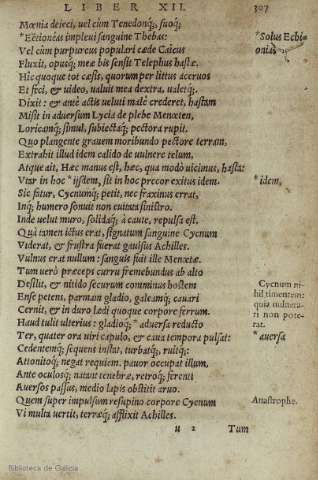 LIBER XII. 307
Mœnia deieci, uel cùm Tenedonq́;, suoq́;
*Eëtioneas impleui sanguine Thebas:
*Solus Echi
onias
Vel cùm purpureus populari cæde Caicus
Fluxit, opusq́; meæ bis sensit Telephus hastæ.
Hic quoque tot cæsis, quorum per littus aceruos
Et feci, & uideo, ualuit mea dextra, ualetq́;.
Dixit: & antè actis ueluti malè crederet, hastam
Misit in aduersum Lycia de plebe Menœten,
Loricamq́; simul, subiectaq́; pectora rupit.
Quo plangente grauem moribundo pectore terram,
Extrahit illud idem calido de uulnere telum,
Atque ait, Hæc manus est, hæc, qua modò uicimus, hasta:
Vtar in hoc *ijsdem, sit in hoc precor exitus idem.
*idem,
Sic fatur, Cycnumq́; petit, nec fraxinus errat,
Inq́; humero sonuit non euitata sinistro.
Inde uelut muro, solidaq́; à caute, repulsa est.
Quà tamen ictus erat, signatum sanguine Cycnum
Viderat, & frustra fuerat gauisus Achilles.
Vulnus erat nullum: sanguis fuit ille Menœtæ.
Tum uerò præceps curru fremebundus ab alto
Desilit, & nitido securum comminus hostem
Cycnum ni-
hil timentem:
quia uulnera-
ri non pote-
rat.
Ense petens, parmam gladio, galeamq́; cauari
Cernit, & in duro lædi quoque corpore ferrum.
Haud tulit ulterius: gladioq́; *aduersa reducto
*auersa
Ter, quater ora uiri capulo, & caua tempora pulsat:
Cedentemq́; sequens instat, turbatq́;, ruitq́;:
Attonitoq́; negat requiem. pauor occupat illum,
Ante oculosq́; natant tenebræ, retroq́; ferenti
Auersos passus, medio lapis obstitit aruo.
Quem super impulsum resupino corpore Cycnum
Anastrophe.
Vi multa uertit, terræq́; afflixit Achilles.
u 2 Tum
Biblioteca de Galicia